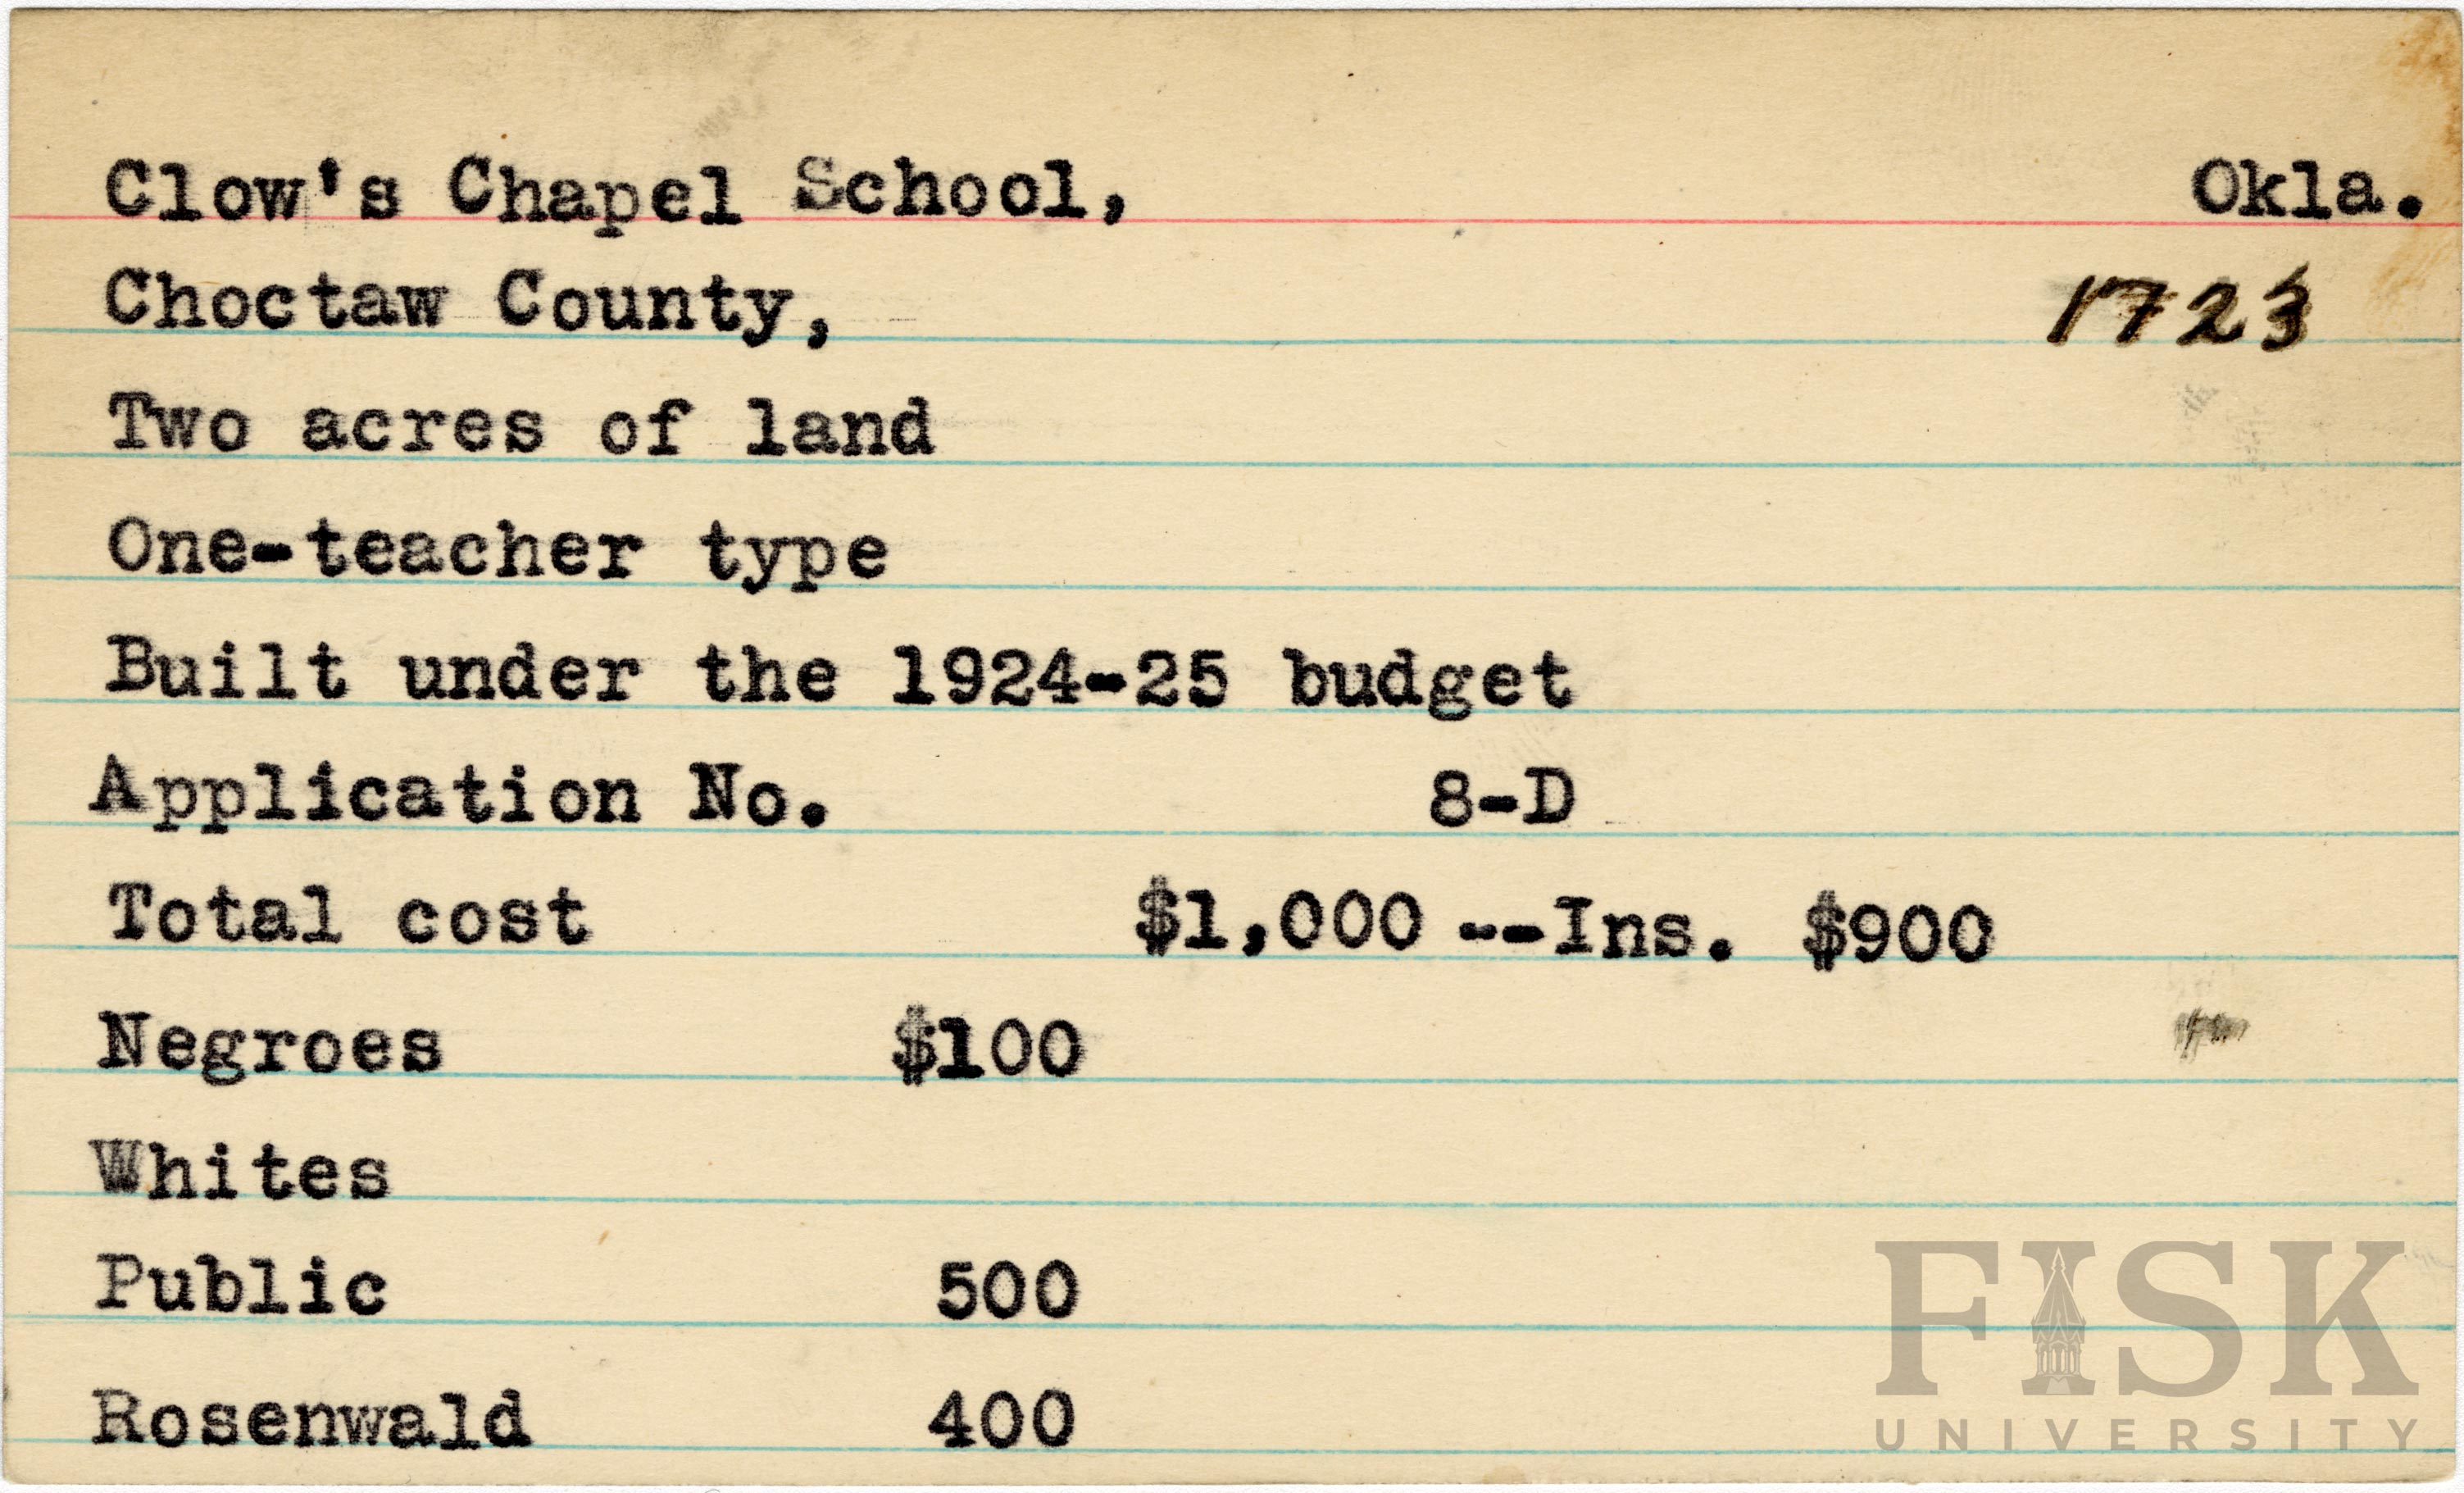 Clow's Chapel School, Okla.
Choctaw County, 1723
Two acres of land
One-teacher type
Built under the 1924-25 budget
Application No. 8-D
Total cost $1,000 --Ins. $900
Negroes $100
Whites
Public 500
Rosenwald 400
FISK
UNIVERSITY